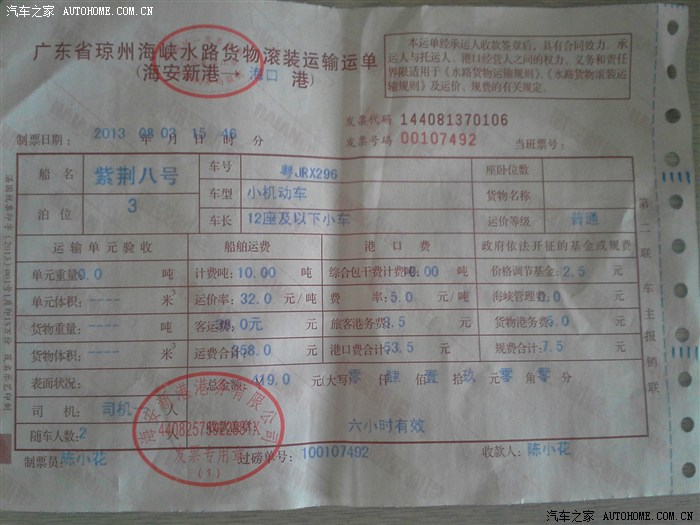 汽车之家 | AUTOHOME.COM.CN
广东省琼州海峡水路货物滚装运输运单
(海安新港—海口 港)
本运单经承运人收款签章后,具有合同效力,承
运人与托运人、港口经营人之间的权力、义务和责任
界限适用于《水路货物运输规则》《水路货物滚装运
输规则》及运价、规费的有关规定。
发票代码 144081370106
发票号码 00107492 当班票号:
制票日期: 2013 年 08 月 03 日 15 时 46 分
船 名 紫荆八号 车号 粤JRX296 座卧位数
泊 位 3 车型 小机动车 货物名称
车长 12座及以下小车 运价等级 普通
运输单元验收 船舶运费 港口费 政府依法开征的基金或规费
单元重量: 0.0 吨 计费吨: 10.00 吨 综合包干费计费 0.00 吨 价格调节基金: 2.5 元
单元体积: ---- 米3 运价率: 32.0 元/吨 费 率: 5.0 元/吨 海峡管理 0.0 元
货物重量: ---- 吨 客运费: 38.0元 元 旅客港务费 3.5 元 货物港务费 5.0 元
货物体积: ---- 米3 运费合计: 358.0 元 港口费合计: 53.5 元 规费合计: 7.5 元
表面状况: 总金额: 419.0 元(大写 零 仟 肆 佰 壹 拾 玖 元 零 角 零 分
司 机: 司机一 人
随车人数: 2 人 六小时有效
海安新港港务有限公司
44082573922831X
发票专用章
(1)
制票员: 陈小花 过磅单号: 100107492 收款人: 陈小花
第二联 车主报销联
汽车之家 AUTOHOME.COM.CN